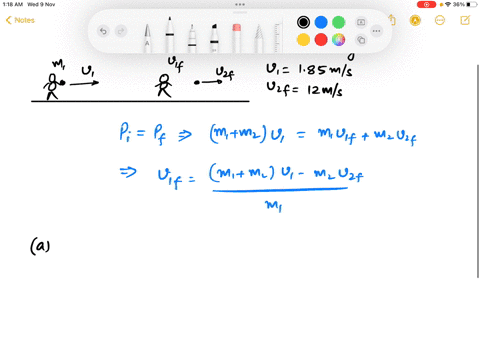 1:18 AM Wed 9 Nov
36%
Notes
m₁ v₁ v₁f v₂f v₁ = 1.85 m/s
v₂f = 12 m/s
Pᵢ = P_f ⇒ (m₁+m₂) v₁ = m₁v₁f + m₂v₂f
⇒ v₁f = (m₁+m₂) v₁ − m₂ v₂f
m₁
(a)